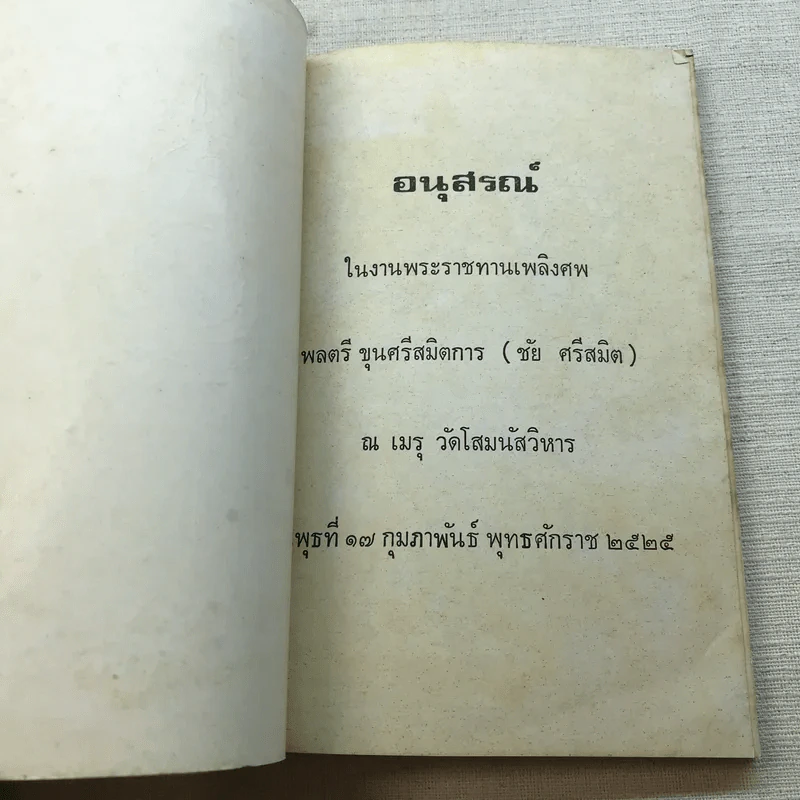 อนุสรณ์
ในงานพระราชทานเพลิงศพ
พลตรี ขุนศรีสมิตการ ( ชัย ศรีสมิต )
ณ เมรุ วัดโสมนัสวิหาร
พุธที่ ๑๗ กุมภาพันธ์ พุทธศักราช ๒๕๒๕